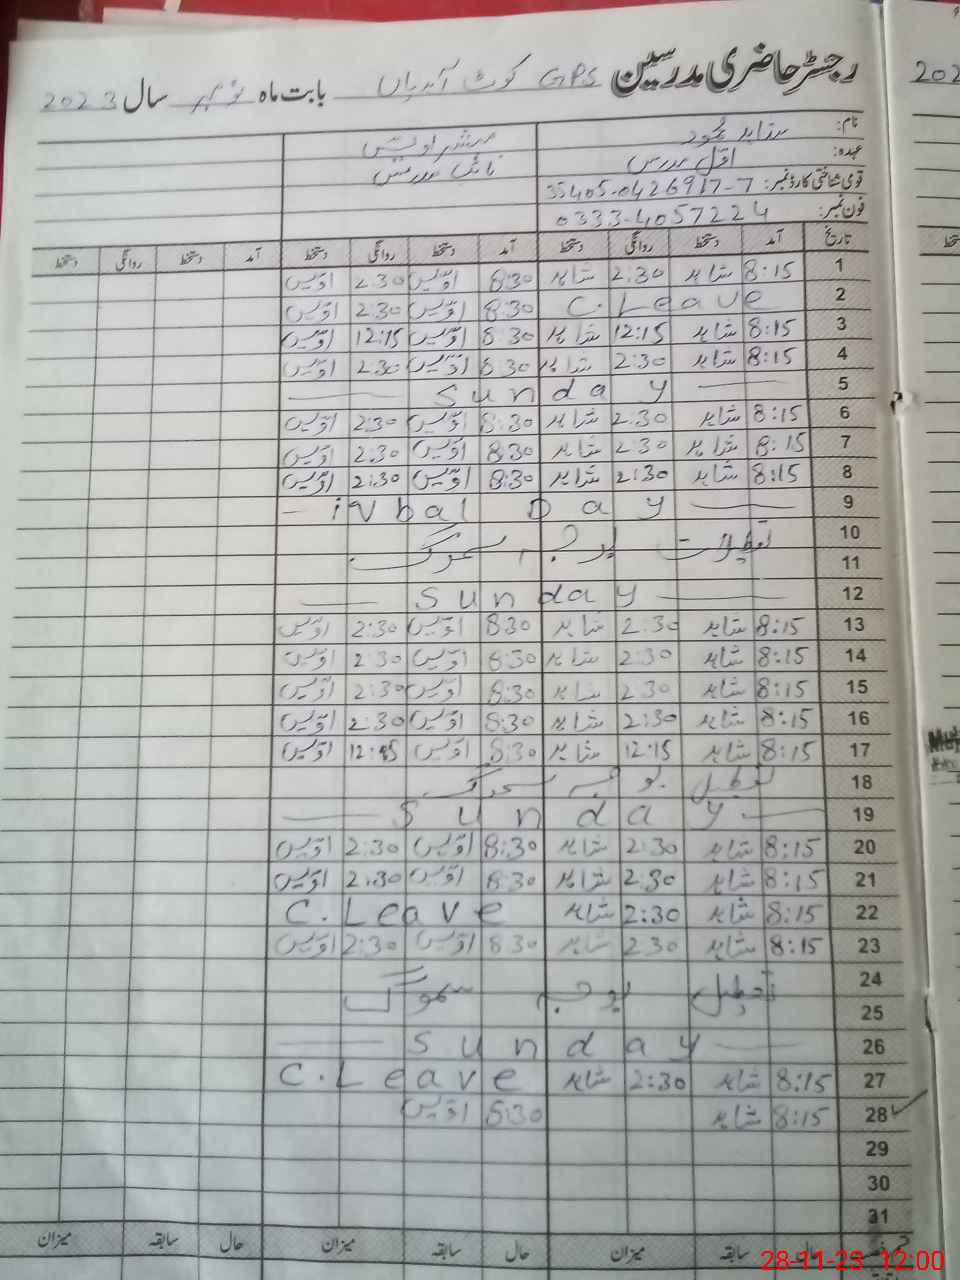 رجسٹر حاضری مدرسین GPS کوٹ آندیاں بابت ماہ نومبر سال 2023
نام: شاہد محمود مبشر اویس
عہدہ: اوّل مدرس نائب مدرس
قومی شناختی کارڈ نمبر: 35405-0426917-7
فون نمبر: 0333-4057224
تاریخ آمد دستخط روانگی دستخط آمد دستخط روانگی دستخط آمد دستخط روانگی دستخط
1 8:15 شاہد 2:30 شاہد 8:30 اویس 2:30 اویس
2 C.Leave 8:30 اویس 2:30 اویس
3 8:15 شاہد 12:15 شاہد 8:30 اویس 12:15 اویس
4 8:15 شاہد 2:30 شاہد 8:30 اویس 2:30 اویس
5 Sunday
6 8:15 شاہد 2:30 شاہد 8:30 اویس 2:30 اویس
7 8:15 شاہد 2:30 شاہد 8:30 اویس 2:30 اویس
8 8:15 شاہد 2:30 شاہد 8:30 اویس 2:30 اویس
9 iVbal Day
10 تعطیلات بوجہ سموگ
11
12 Sunday
13 8:15 شاہد 2:30 شاہد 8:30 اویس 2:30 اویس
14 8:15 شاہد 2:30 شاہد 8:30 اویس 2:30 اویس
15 8:15 شاہد 2:30 شاہد 8:30 اویس 2:30 اویس
16 8:15 شاہد 2:30 شاہد 8:30 اویس 2:30 اویس
17 8:15 شاہد 12:15 شاہد 8:30 اویس 12:15 اویس
18 تعطیل بوجہ سموگ
19 Sunday
20 8:15 شاہد 2:30 شاہد 8:30 اویس 2:30 اویس
21 8:15 شاہد 2:30 شاہد 8:30 اویس 2:30 اویس
22 8:15 شاہد 2:30 شاہد C.Leave
23 8:15 شاہد 2:30 شاہد 8:30 اویس 2:30 اویس
24 تعطیل بوجہ سموگ
25
26 Sunday
27 8:15 شاہد 2:30 شاہد C.Leave
28 8:15 شاہد 8:30 اویس
29
30
31
حال سابقہ میزان حال سابقہ میزان حال سابقہ میزان
28-11-23 12:00